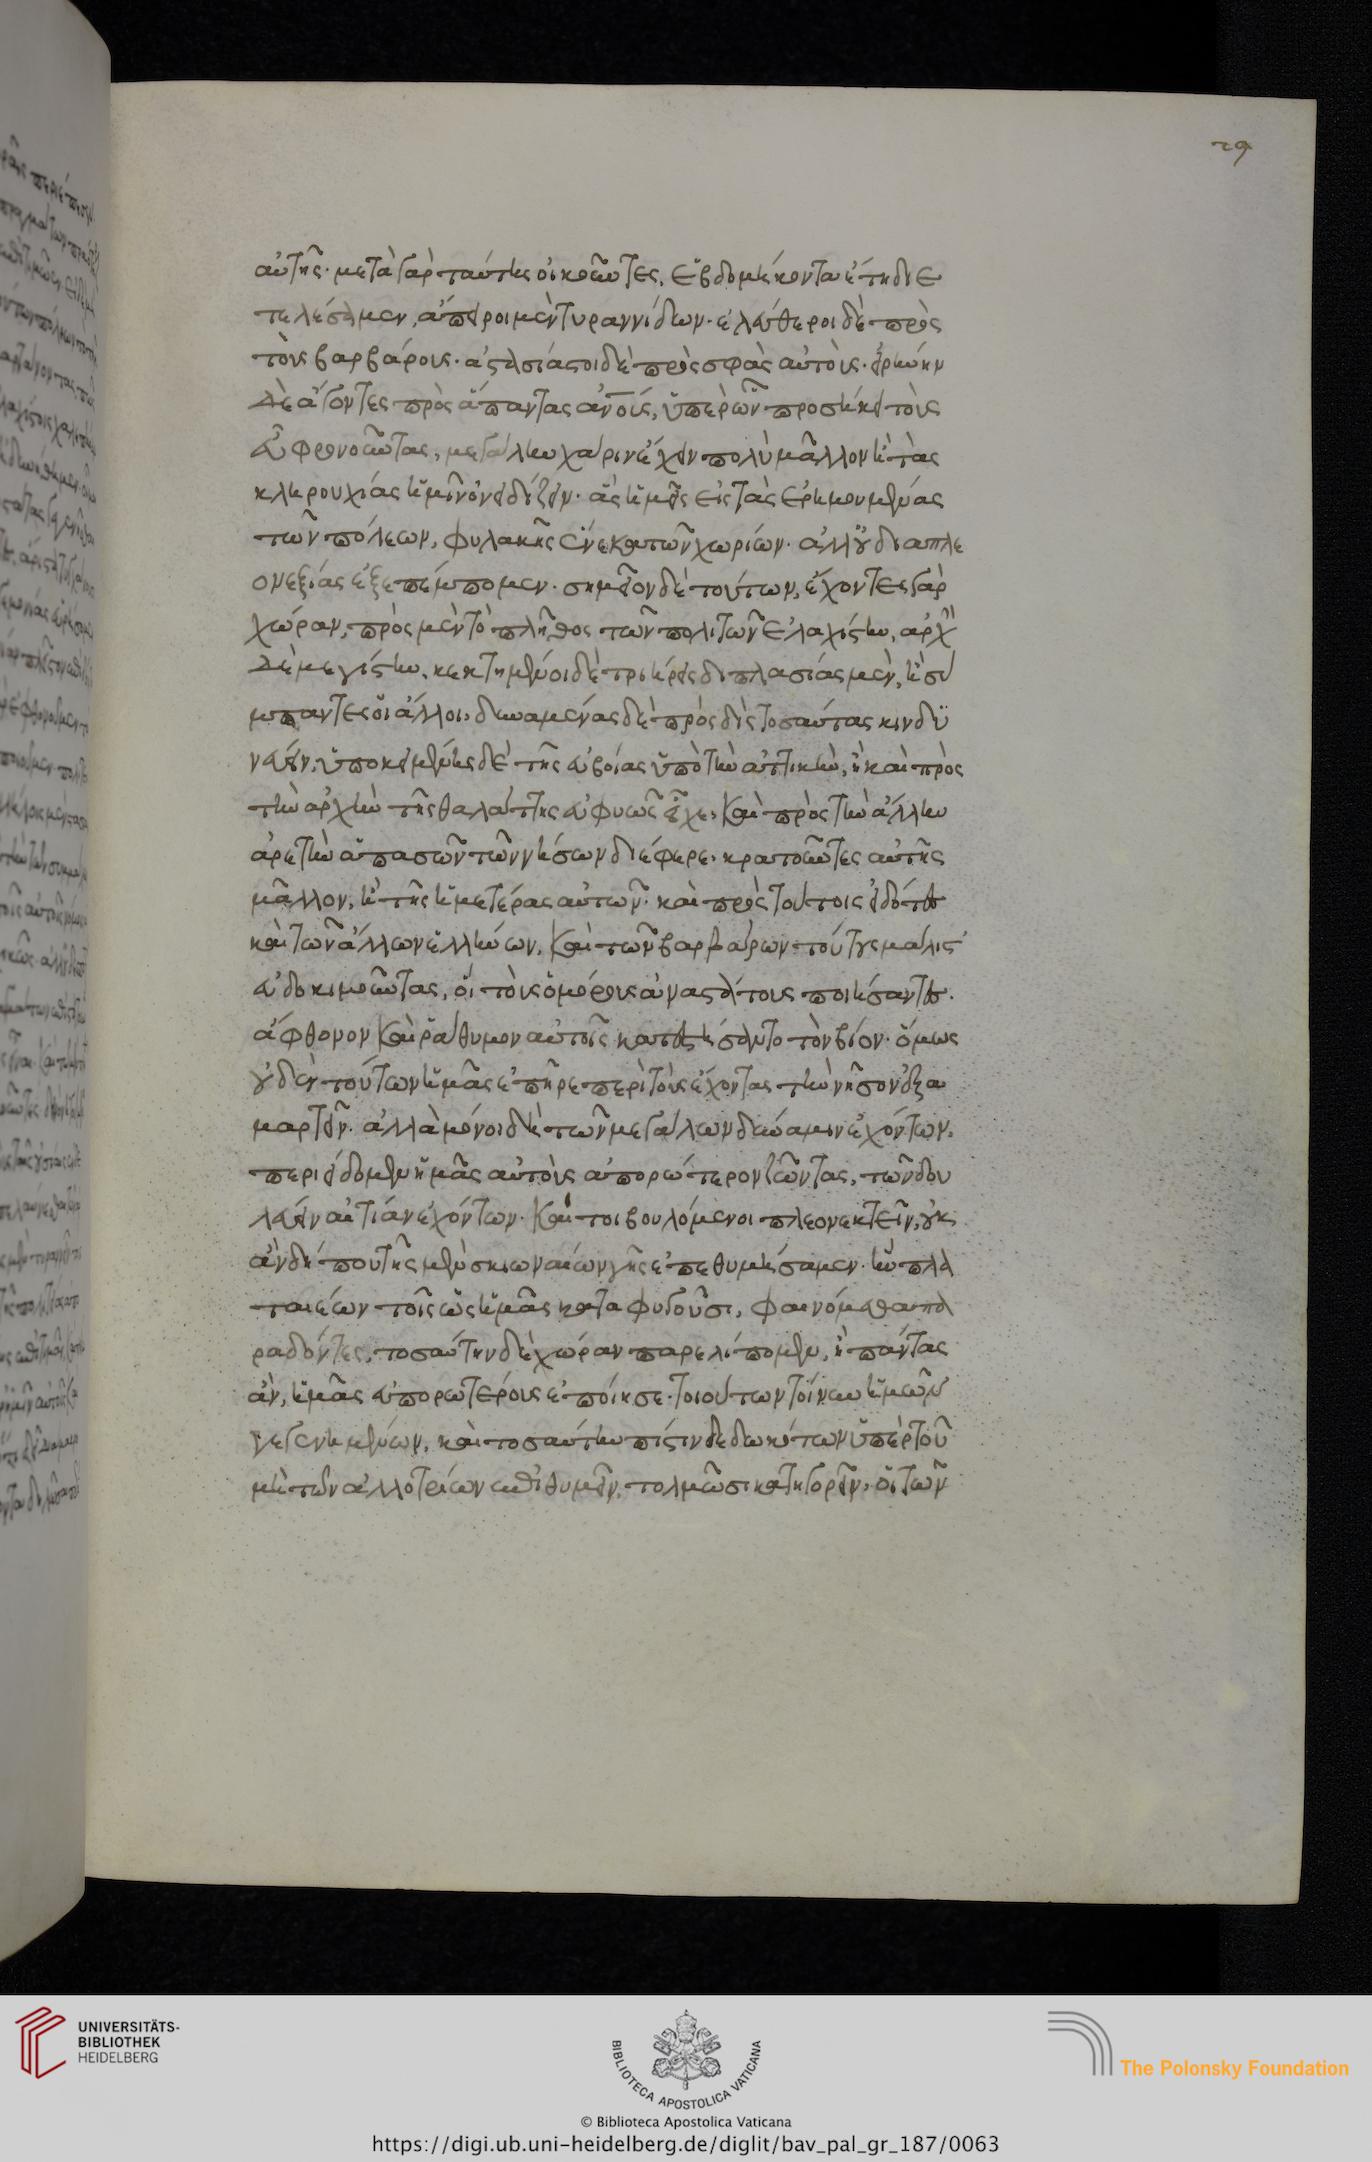 29
αὐτῆς· μετὰ γὰρ ταύτης οἰκοῦντες, ἑβδομήκοντα ἔτη διε
τελέσαμεν, ἄπειροι μὲν τυραννίδων· ἐλεύθεροι δὲ πρὸς
τοὺς βαρβάρους· ἀστασίαστοι δὲ πρὸς σφὰς αὐτοὺς· εἰρήνην
δὲ ἄγοντες πρὸς ἅπαντας ἀνοις, ὑπὲρ ὧν προσήκει τοὺς
εὖ φρονοῦντας, μεγάλην χάριν ἔχειν πολὺ μᾶλλον ἢ τὰς
κληρουχίας ἡμῖν ὀνειδίζειν· ἃς ἡμεῖς εἰς τὰς ἐρημουμένας
τῶν πόλεων, φυλακῆς ἕνεκα τῶν χωρίων· ἀλλ' οὐ δια πλε
ονεξίας ἐξεπέμπομεν· σημεῖον δὲ τούτων, ἔχοντες γὰρ
χώραν, πρὸς μὲν τὸ πλῆθος τῶν πολιτῶν ἐλαχίστην, ἀρχὴ
δὲ μεγίστην, κεκτημένοι δὲ τριήρεις διπλασίας μὲν, ἢ σύ
μπαντες οἱ ἄλλοι, δυναμένας δὲ πρὸς δὶς τοσαύτας κινδυ
νεύειν, ὑποκειμένης δὲ τῆς εὐβοίας ὑπὸ τὴν ἀττικὴν, ἣ καὶ πρὸς
τὴν ἀρχὴν τῆς θαλάττης εὐφυῶς εἶχε, καὶ πρὸς τὴν ἄλλην
ἀρετὴν ἁπασῶν τῶν νήσων διέφερε, κρατοῦντες αὐτῆς
μᾶλλον, ἢ τῆς ἡμετέρας αὐτῶν· καὶ πρὸς τούτοις εἰδότες
καὶ τῶν ἄλλων ἑλλήνων, καὶ τῶν βαρβάρων τούτους μάλιστ'
εὐδοκιμοῦντας, οἳ τοὺς ὁμόρους ἀναστάτους ποιήσαντες·
ἄφθονον καὶ ῥάθυμον αὑτοῖς κατεστήσαντο τὸν βίον· ὅμως
οὐδὲν τούτων ἡμᾶς ἐπῆρε περὶ τοὺς ἔχοντας τὴν νῆσον ἐξα
μαρτεῖν· ἀλλὰ μόνοι δὴ τῶν μεγάλην δύναμιν ἐχόντων,
περιείδομεν ἡμᾶς αὐτοὺς ἀπορώτερον ζῶντας, τῶν δου
λεύειν αἰτίαν ἐχόντων· καί τοι βουλόμενοι πλεονεκτεῖν, οὐκ
ἂν δήπου τῆς μὲν σκιωναίων γῆς ἐπεθυμήσαμεν· ἣν πλα
ταιέων τοῖς ὡς ἡμᾶς καταφυγοῦσι, φαινόμεθα πα
ραδόντες, τοσαύτην δὲ χώραν παρελίπομεν, ἣ πάντας
ἂν, ἡμᾶς εὐπορωτέρους ἐποίησε· τοιούτων τοίνυν ἡμῶν
γεγενημένων, καὶ τοσαύτην πίστιν δεδωκότων ὑπὲρ τοῦ
μὴ τῶν ἀλλοτρίων ἐπιθυμεῖν, τολμῶσι κατηγορεῖν, οἱ τῶν
UNIVERSITÄTS-
BIBLIOTHEK
HEIDELBERG
BIBLIOTECA APOSTOLICA VATICANA
The Polonsky Foundation
© Biblioteca Apostolica Vaticana
https://digi.ub.uni-heidelberg.de/diglit/bav_pal_gr_187/0063